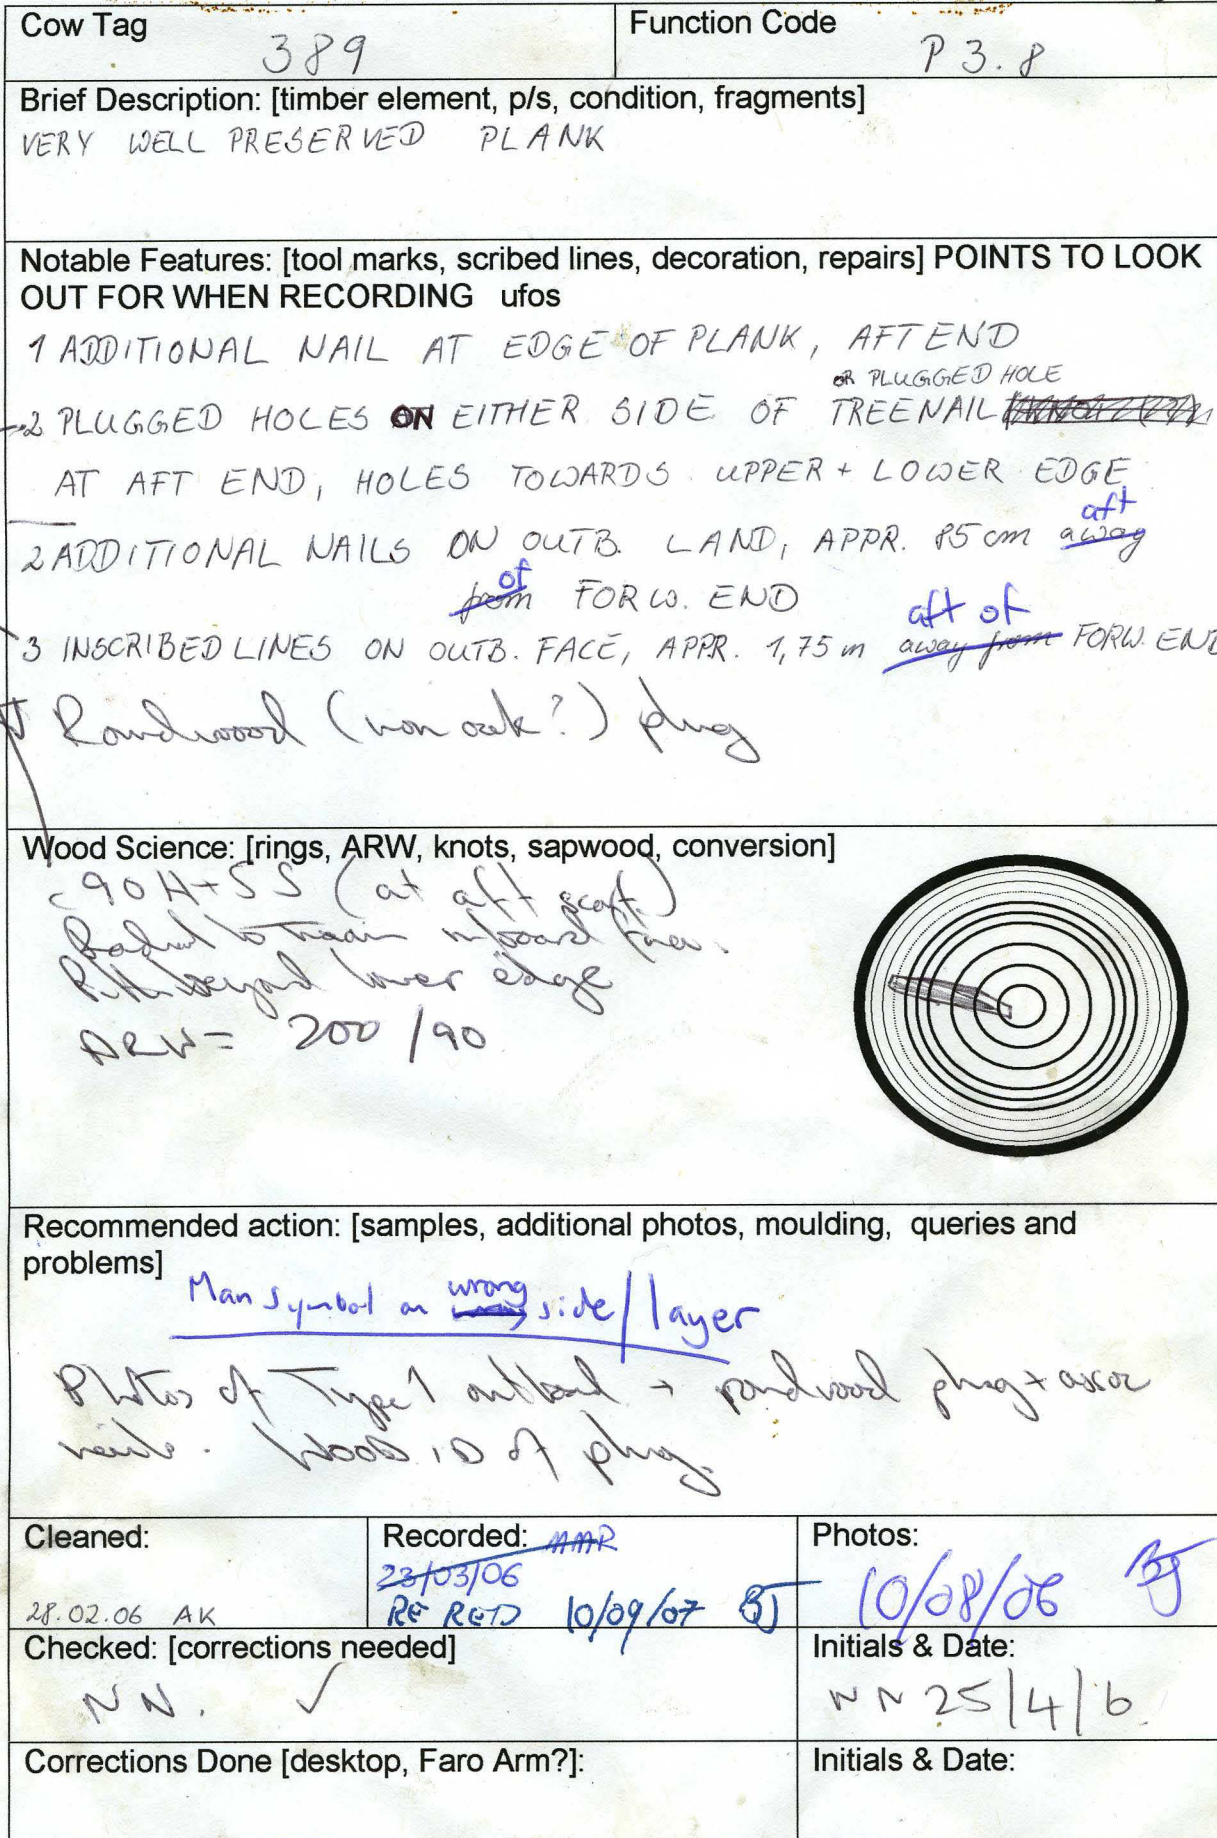 Cow Tag
389
Function Code
P 3.8
Brief Description: [timber element, p/s, condition, fragments]
VERY WELL PRESERVED PLANK
Notable Features: [tool marks, scribed lines, decoration, repairs] POINTS TO LOOK
OUT FOR WHEN RECORDING ufos
1 ADDITIONAL NAIL AT EDGE OF PLANK, AFT END
OR PLUGGED HOLE
2 PLUGGED HOLES ON EITHER SIDE OF TREENAIL
AT AFT END, HOLES TOWARDS UPPER + LOWER EDGE
aft
2 ADDITIONAL NAILS ON OUTB. LAND, APPR. 85 cm away
of
from FORW. END
aft of
3 INSCRIBED LINES ON OUTB. FACE, APPR. 1,75 m away from FORW. END
Roundwood (non oak?) plug
Wood Science: [rings, ARW, knots, sapwood, conversion]
c90 H+SS (at aft scarf)
Radial to inboard face.
Pith beyond lower edge
ARW = 200/90
Recommended action: [samples, additional photos, moulding, queries and
problems]
wrong
Man symbol on side/layer
Photos of Type 1 outboard + roundwood plug + assoc
nails. Wood ID of plug.
Cleaned:
28.02.06 AK
Recorded: AAR
23/03/06
RE REC'D 10/09/07 BJ
Photos:
10/08/06 BJ
Checked: [corrections needed]
NN. ✓
Initials & Date:
NN 25/4/6
Corrections Done [desktop, Faro Arm?]:
Initials & Date: